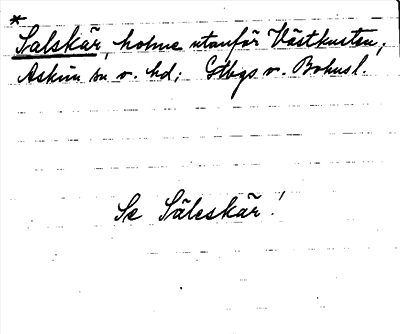 *
Salskär, holme utanför Västkusten,
Askim sn o. hd; Gtbgs o. Bohusl.
Se Säleskär!